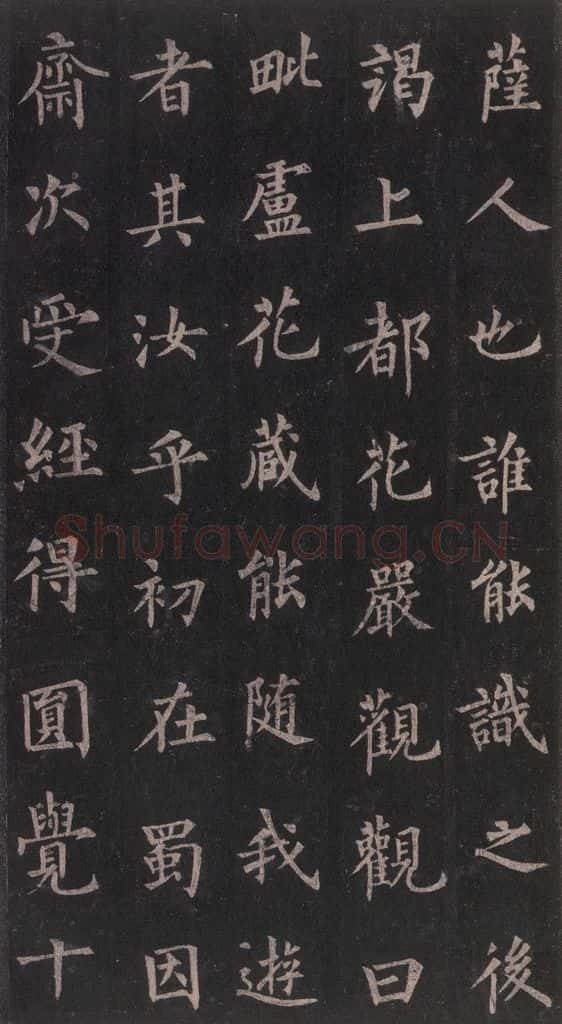 薩人也誰能識之後
謁上都花嚴觀觀曰
毗盧花蔵能随我遊
者其汝乎初在蜀因
齋次受經得圎覺十
Shufawang.CN